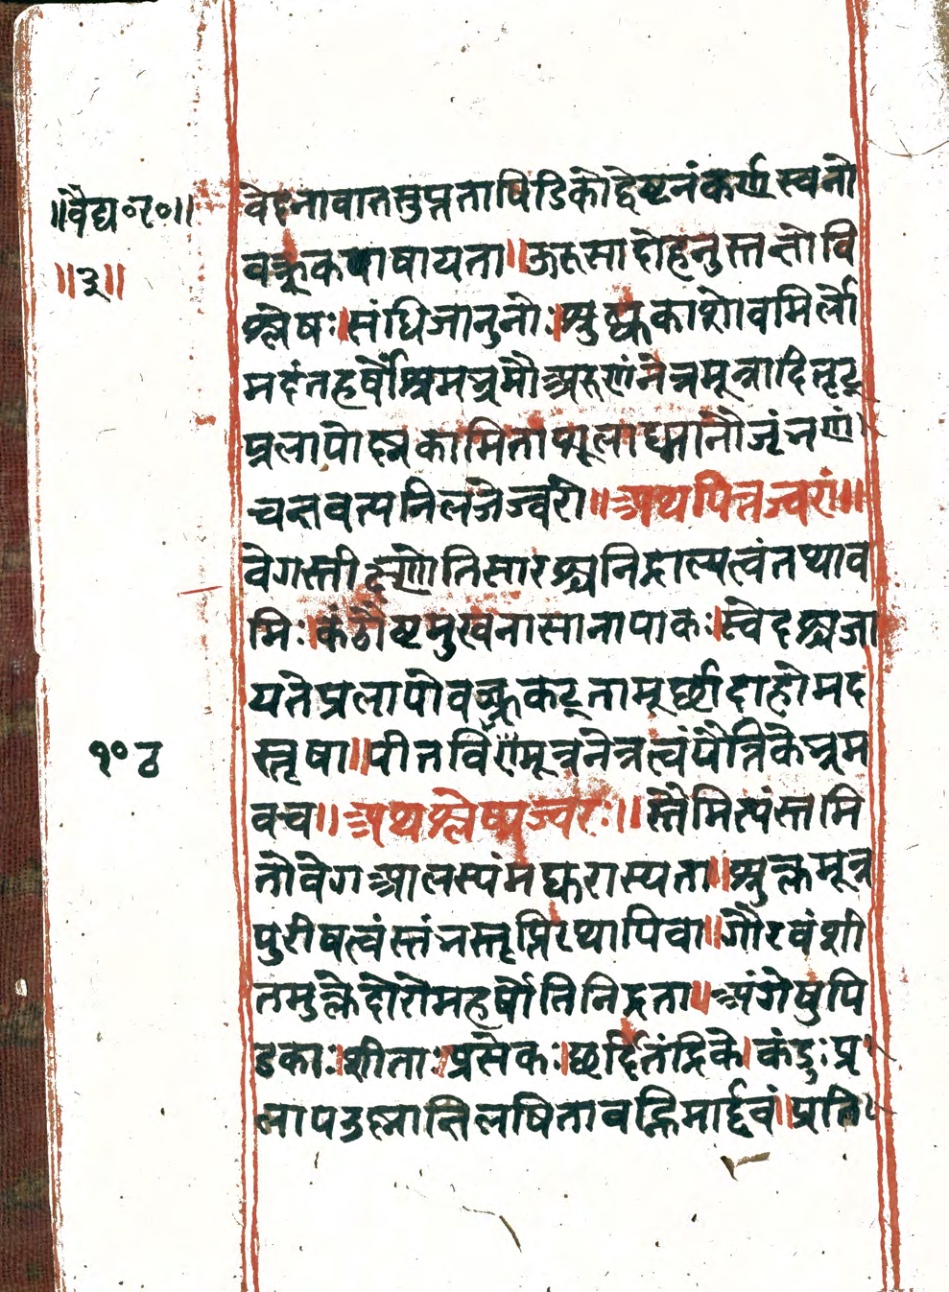 ॥वैद्य॰र॰॥
॥३॥
वेदनावातसुप्ततापिंडिकोद्वेष्टनंकर्णस्वनो
वक्त्रकषायता॥ऊरुसादोहनुस्तम्भोवि
श्लेषः।संधिजानुनोः।श्रुष्ककाशोवमिर्लो
मदंतहर्षोश्रमभ्रमौअरुणंनेत्रमूत्रादितृट्
प्रलापोष्मकामिताशूलाध्मानौजृंभणं
चभवत्यनिलजेज्वरो॥अथपित्तज्वरां॥
वेगस्तीक्ष्णोतिसारश्चनिद्राल्पत्वंतथाव
मिः।कंठौष्टमुखनासानापाकः।स्वेदश्चजा
यतेप्रलापोवक्त्रकटुतामूर्छादाहोमद
स्तृषा॥पीतविण्मूत्रनेत्रत्वंपैत्तिकेभ्रम
वच॥अथश्लेष्मज्वरः॥स्तैमित्यंस्तमि
तोवेगआलस्यंमधुरास्यता॥श्रुक्लमूत्र
पुरीषत्वंस्तंभस्तृप्तिरथापिवा॥गौरवंशी
तमुत्क्लेदोरोमहर्षोतिनिद्रता॥अंगेषुपि
डकाः।शीताः।प्रसेकः।छर्दितंद्रिके।कंडुःप्र
लापउष्माभिलषितावह्निमार्द्दवं॥प्रति
१०८